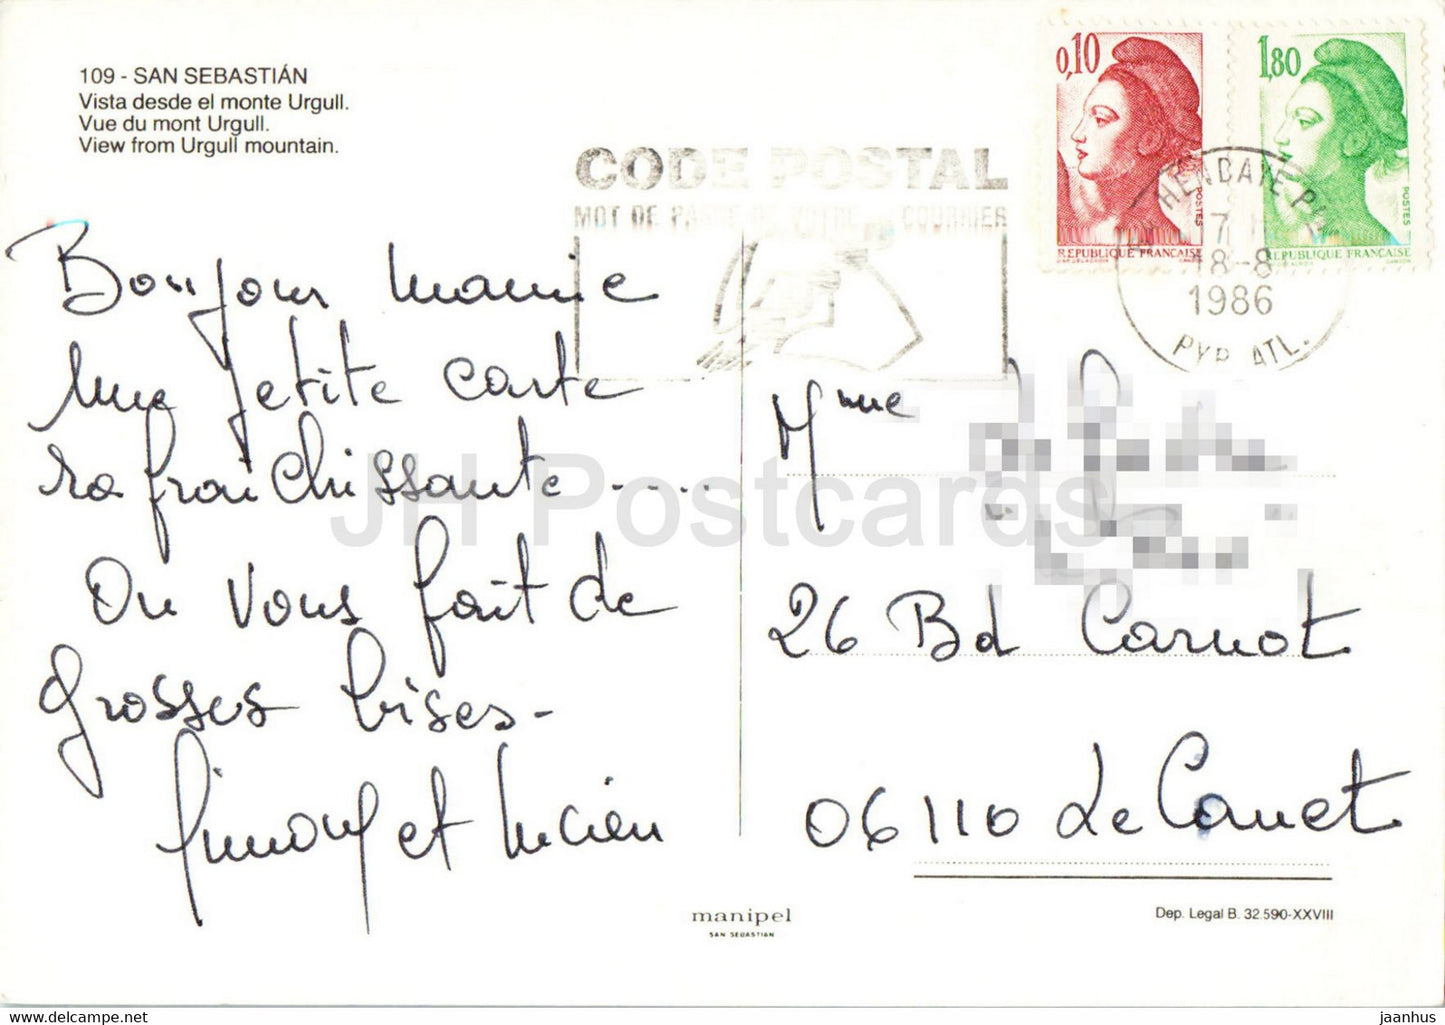 109 - SAN SEBASTIÁN
Vista desde el monte Urgull.
Vue du mont Urgull.
View from Urgull mountain.
CODE POSTAL
MOT DE PASSE DE VOTRE COURRIER
0,10
REPUBLIQUE FRANÇAISE
POSTES
1,80
REPUBLIQUE FRANÇAISE
POSTES
HENDAYE
7 H
18-8
1986
PYR. ATL.
Bonjour mamie
une petite carte
rafraichissante ....
On vous fait de
grosses bises-
Simone et Lucien
Mme
26 Bd Carnot
06110 Le Canet
JH Postcards
manipel
SAN SEBASTIAN
Dep. Legal B. 32.590-XXVIII
jaanhus www.hipstamp.com